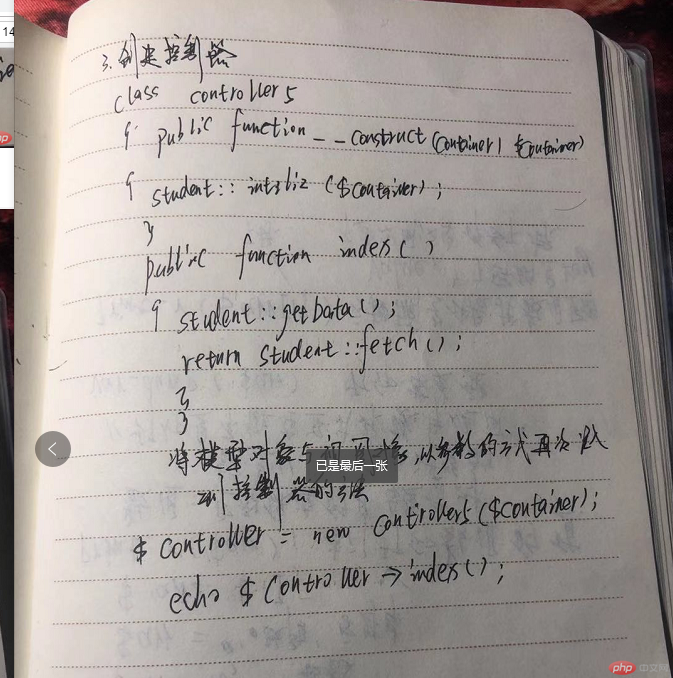 3. 创建控制器
class controller5
{ public function __construct(Container1 $container)
{ student::intsliz ($container);
}
public function index()
{ student::getData();
return student::fetch();
}
}
将模型对象与视图对象,以参数的方式再次
到控制器的方法
已是最后一张
$ controller = new Controller5($container);
echo $ Controller -> index();
14
php
php 中文网